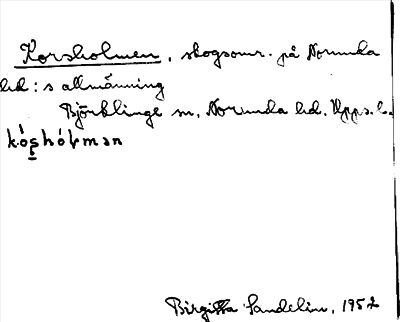 Korsholmen, skogsomr. på Norunda
hd:s allmänning
Björklinge sn, Norunda hd. Upps. l.
Birgitta Sandelin, 1952